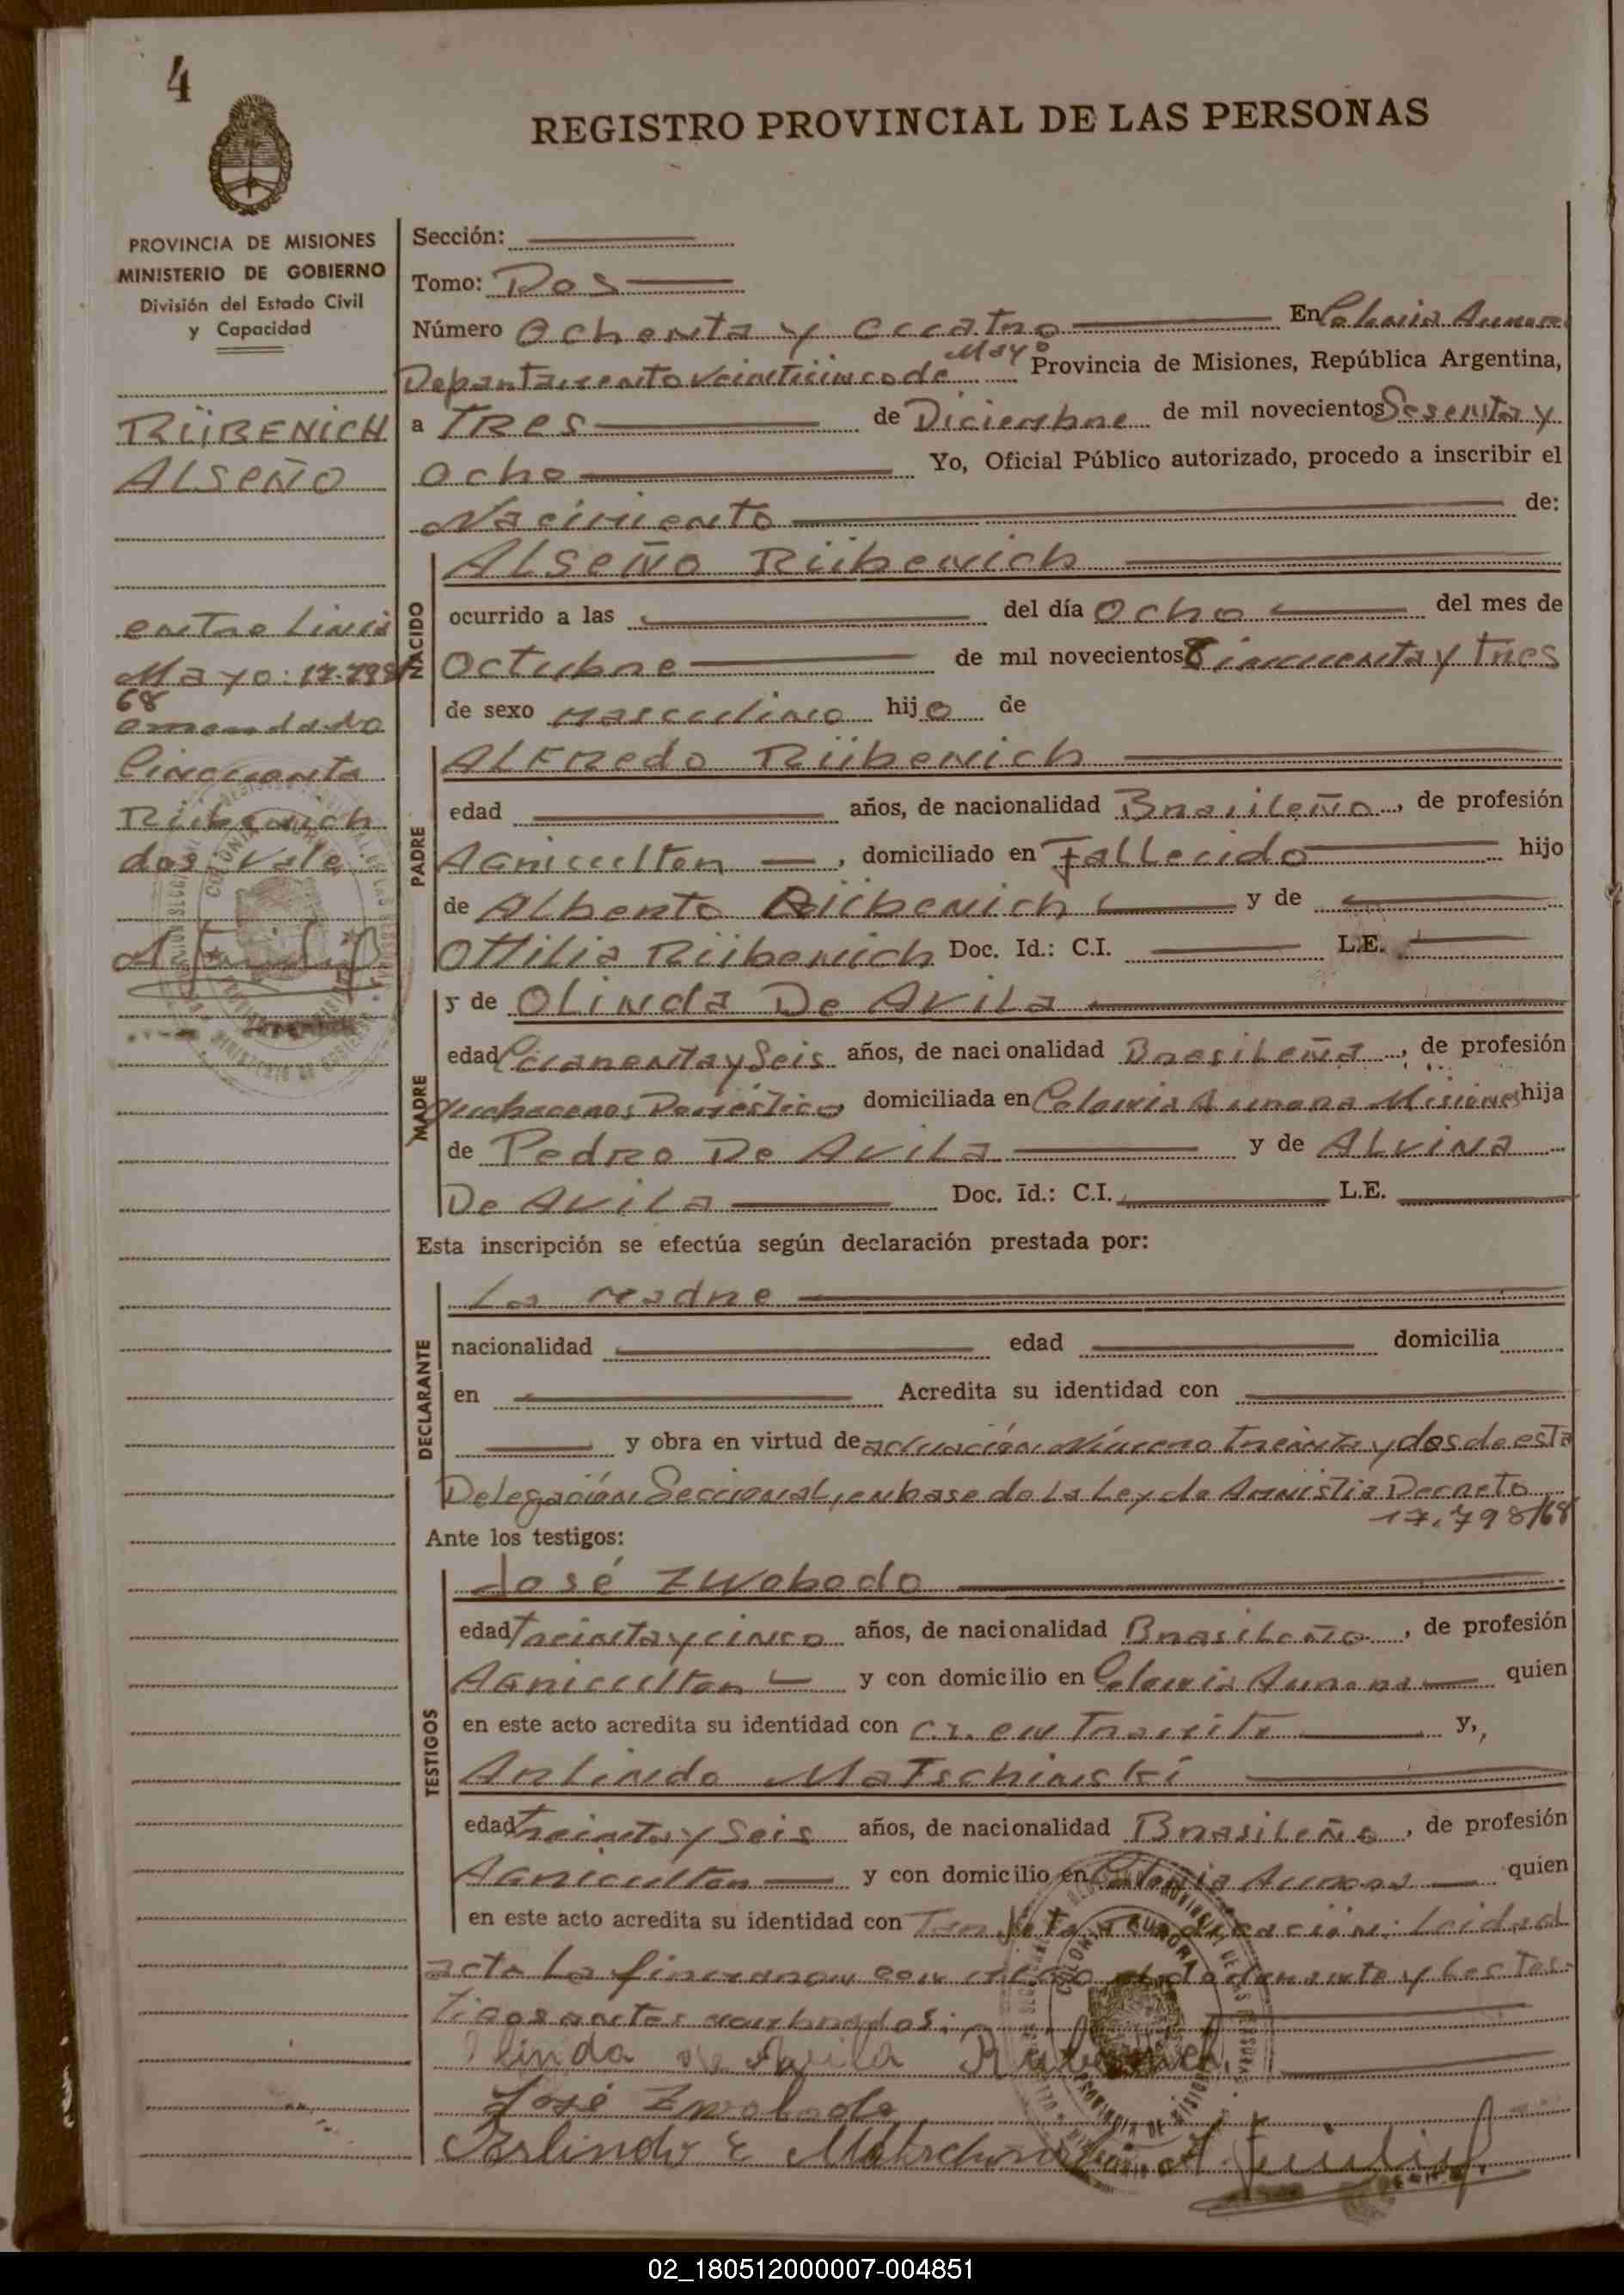 4
REGISTRO PROVINCIAL DE LAS PERSONAS
PROVINCIA DE MISIONES
MINISTERIO DE GOBIERNO
División del Estado Civil
y Capacidad
RÜBENICH
ALSEÑO
entre linia
Mayo: 17.798/
68
emendado
Cincuenta
Rübenich
dos, vale.
Sección:
Tomo: Dos
Número Ochenta y Cuatro En Colonia Aurora
Departamento Veinticinco de Mayo Provincia de Misiones, República Argentina,
a TRES de Diciembre de mil novecientos Sesenta y
Ocho Yo, Oficial Público autorizado, procedo a inscribir el
Nacimiento de:
NACIDO
ALSEÑO Rübenich
ocurrido a las del día Ocho del mes de
Octubre de mil novecientos Cincuenta y Tres
de sexo Masculino hijo de
PADRE
ALFRedo Rübenich
edad años, de nacionalidad Brasileño, de profesión
Agricultor, domiciliado en Fallecido hijo
de Alberto Rübenich y de
Ottilia Rübenich Doc. Id.: C.I. L.E.
MADRE
y de OLINda De AviLa
edad Cuarenta y Seis años, de nacionalidad Brasileña, de profesión
Quehaceres Doméstico domiciliada en Colonia Aurora Misiones hija
de Pedro De AviLa y de ALviNa
De AviLa Doc. Id.: C.I. L.E.
Esta inscripción se efectúa según declaración prestada por:
DECLARANTE
La madre
nacionalidad edad domicilia
en Acredita su identidad con
y obra en virtud de actuación Número Treinta y dos de esta
Delegación Seccional, en base de la Ley de Amnistia Decreto
17.798/68
Ante los testigos:
TESTIGOS
José Zwobodo
edad Treinta y cinco años, de nacionalidad Brasileño, de profesión
Agricultor y con domicilio en Colonia Aurora quien
en este acto acredita su identidad con C.I. en Tramite y,
Arlindo Matschinski
edad Treinta y Seis años, de nacionalidad Brasileño, de profesión
Agricultor y con domicilio en Colonia Aurora quien
en este acto acredita su identidad con Leida el
acta La firmaran con migo el declarante y Los Tes-
tigos antes nombrados.
Olinda de Avila Rubenich
José Zwobodo
Arlindo E
COLONIA AURORA
PROVINCIA DE MISIONES
02_180512000007-004851